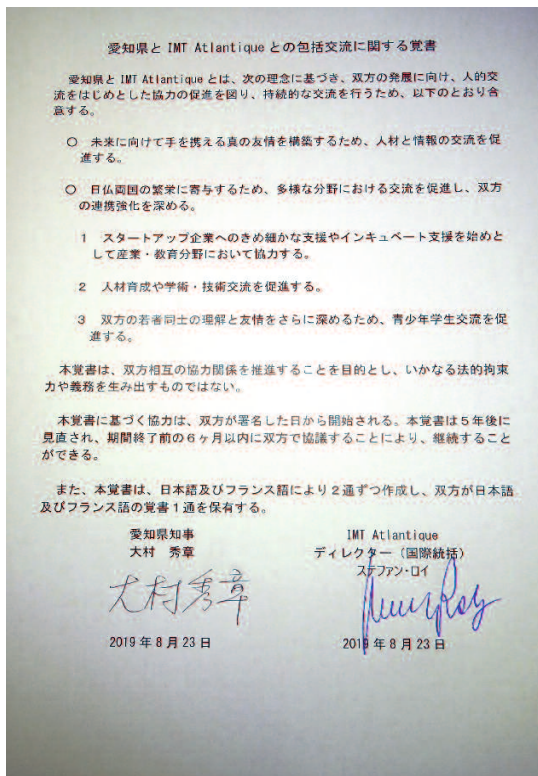 愛知県と IMT Atlantique との包括交流に関する覚書
愛知県と IMT Atlantique とは、次の理念に基づき、双方の発展に向け、人的交
流をはじめとした協力の促進を図り、持続的な交流を行うため、以下のとおり合
意する。
○ 未来に向けて手を携える真の友情を構築するため、人材と情報の交流を促
進する。
○ 日仏両国の繁栄に寄与するため、多様な分野における交流を促進し、双方
の連携強化を深める。
1 スタートアップ企業へのきめ細かな支援やインキュベート支援を始めと
して産業・教育分野において協力する。
2 人材育成や学術・技術交流を促進する。
3 双方の若者同士の理解と友情をさらに深めるため、青少年学生交流を促
進する。
本覚書は、双方相互の協力関係を推進することを目的とし、いかなる法的拘束
力や義務を生み出すものではない。
本覚書に基づく協力は、双方が署名した日から開始される。本覚書は5年後に
見直され、期間終了前の6ヶ月以内に双方で協議することにより、継続すること
ができる。
また、本覚書は、日本語及びフランス語により2通ずつ作成し、双方が日本語
及びフランス語の覚書1通を保有する。
愛知県知事
大村 秀章
大村秀章
2019 年 8 月 23 日
IMT Atlantique
ディレクター（国際統括）
ステファン・ロイ
2019 年 8 月 23 日